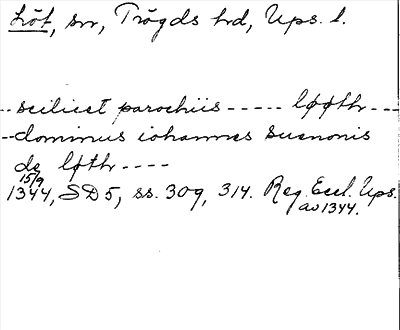 Löt, sn, Trögds hd, Ups. l.
-- scilicet parochiis ----- løøthr ---
-- dominus iohannes suenonis
de løthr ----
15/9
1344, SD 5, ss. 309, 314. Reg. Eccl. Ups.
av 1344.